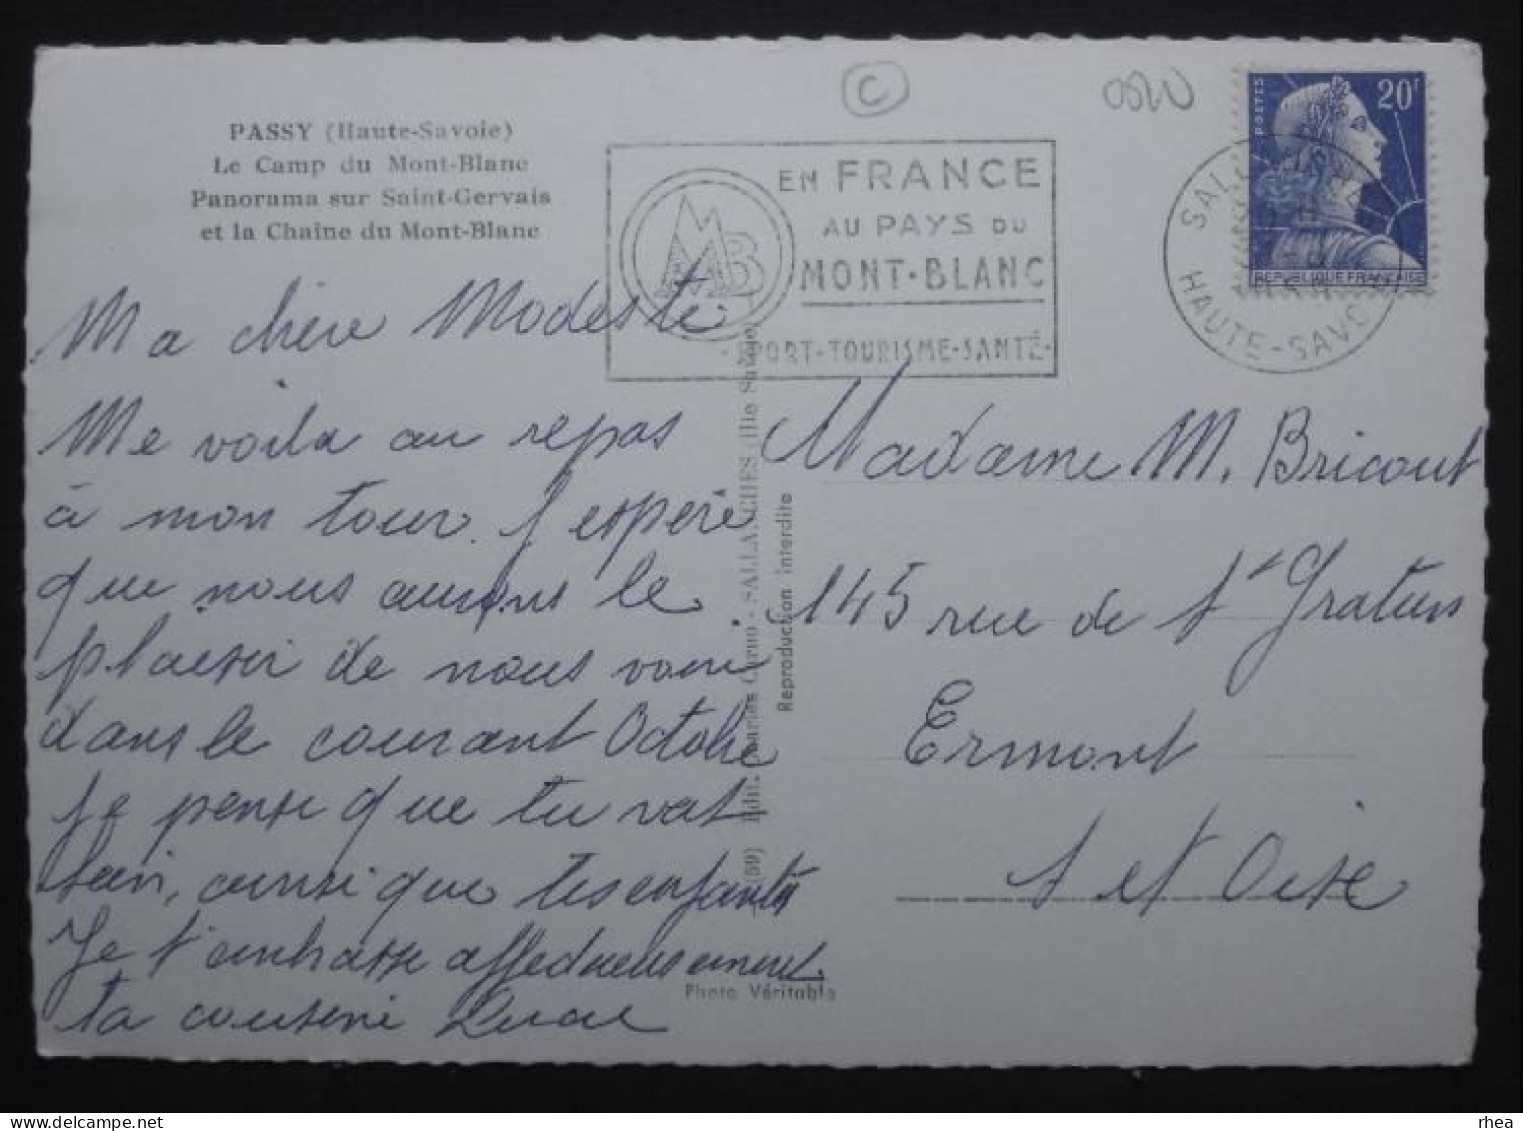 PASSY (Haute-Savoie)
Le Camp du Mont-Blanc
Panorama sur Saint-Gervais
et la Chaîne du Mont-Blanc
C
MB
EN FRANCE
AU PAYS DU
MONT-BLANC
PORT-TOURISME-SANTÉ
POSTES
20F
REPUBLIQUE FRANÇAISE
HAUTE-SAVOIE
Ma chère Modeste
Me voila au repas
à mon tour. J'espère
que nous aurons le
plaisir de nous voir
dans le courant Octobre
Je pense que tu vas
bien, ainsi que tes enfants
Je t'embrasse affectueusement
ta cousine
Edit. Charles - SALLANCHES (Hte Savoie)
Reproduction interdite
(59)
Photo Véritable
Madame M. Bricout
145 rue de St Gratien
Ermont
S et Oise
rhea